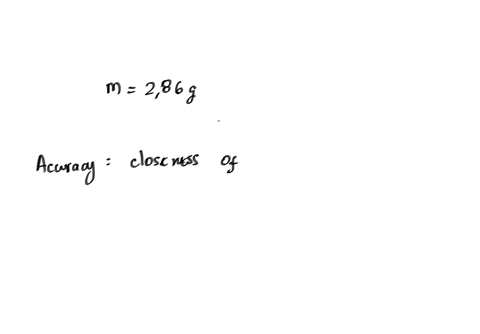 m = 2,86 g
Accuracy : closeness of